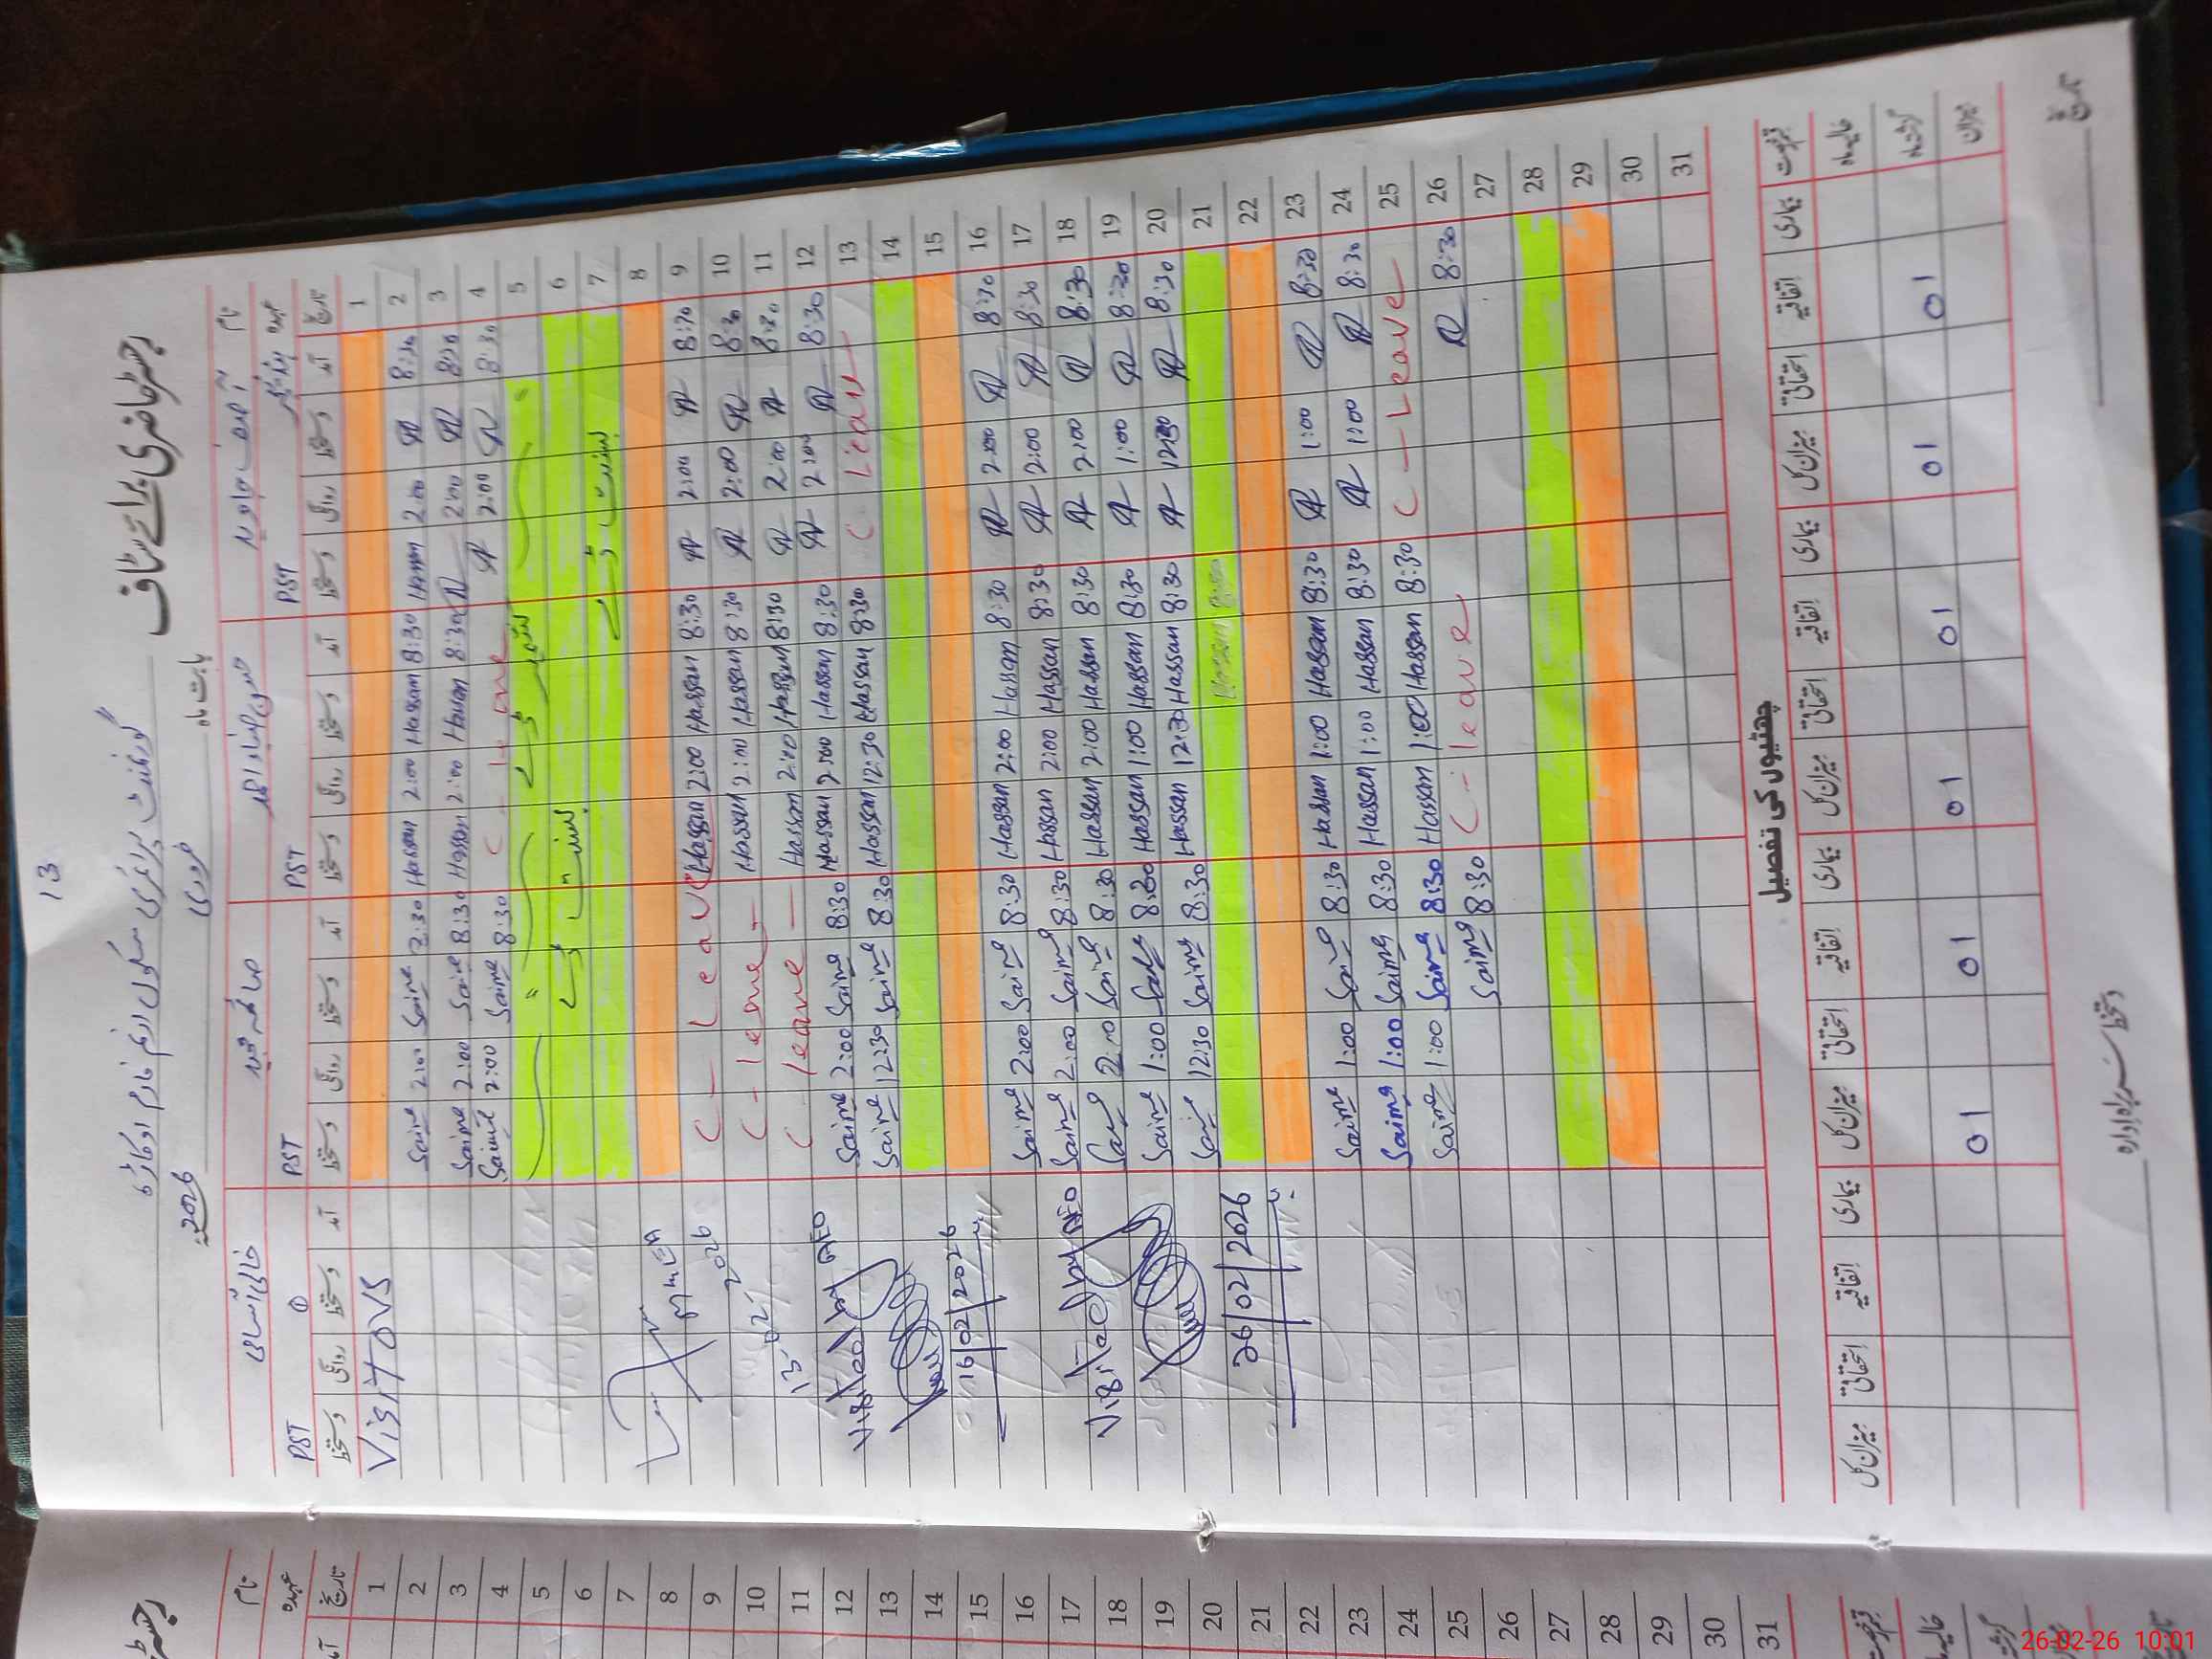 13
رجسٹر حاضری برائے سٹاف
گورنمنٹ پرائمری سکول اوکاڑہ
بابت ماہ فروری 2026
نام آصف جاوید صائمہ خالی آسامی
عہدہ PST PST PST PST
تاریخ آمد دستخط روانگی دستخط آمد دستخط روانگی دستخط آمد دستخط روانگی دستخط آمد دستخط روانگی دستخط
1 Visitors
2 8:30 2:00 Hassan 8:30 Hassan 2:00 Hassan Saima 2:00 Saima
3 8:30 2:00 8:30 Hassan 2:00 Hassan 8:30 Saima 2:00 Saima
4 8:30 2:00 C - leave 8:30 Saima 2:00 Saima
5 کشمیر ڈے
6 بسنت ڈے
7 بسنت ڈے
8
9 8:30 2:00 8:30 Hassan 2:00 Hassan C - Leave
10 8:30 2:00 8:30 Hassan 2:00 Hassan C - leave
11 8:30 2:00 8:30 Hassan 2:00 Hassan C leave
12 8:30 2:00 8:30 Hassan 2:00 Hassan 8:30 Saima 2:00 Saima
13 C Leave 8:30 Hassan 12:30 Hassan 8:30 Saima 12:30 Saima
14
15
16 8:30 2:00 8:30 Hassan 2:00 Hassan 8:30 Saima 2:00 Saima
17 8:30 2:00 8:30 Hassan 2:00 Hassan 8:30 Saima 2:00 Saima
18 8:30 2:00 8:30 Hassan 2:00 Hassan 8:30 Saima 2:00 Saima
19 8:30 1:00 8:30 Hassan 1:00 Hassan 8:30 Saima 1:00 Saima
20 8:30 12:30 8:30 Hassan 12:30 Hassan 8:30 Saima 12:30 Saima
21 Hassan
22
23 8:30 1:00 8:30 Hassan 1:00 Hassan 8:30 Saima 1:00 Saima
24 8:30 1:00 8:30 Hassan 1:00 Hassan 8:30 Saima 1:00 Saima
25 C - Leave 8:30 Hassan 1:00 Hassan 8:30 Saima 1:00 Saima
26 8:30 C - leave 8:30 Saima
27
28
29
30
31
MEA
13-02-2026
Visited by AEO
16/02/2026
Visited by AEO
26/02/2026
چھٹیوں کی تفصیل
قسم رخصت بیماری اتفاقیہ استحقاقی میزان کل بیماری اتفاقیہ استحقاقی میزان کل بیماری اتفاقیہ استحقاقی میزان کل بیماری اتفاقیہ استحقاقی میزان کل
حالیہ ماہ
گزشتہ ماہ 01 01 01 01 01 01
میزان
تاریخ دستخط سربراہ ادارہ
نام
عہدہ
تاریخ
1
2
3
4
5
6
7
8
9
10
11
12
13
14
15
16
17
18
19
20
21
22
23
24
25
26
27
28
29
30
31
26-02-26 10:01